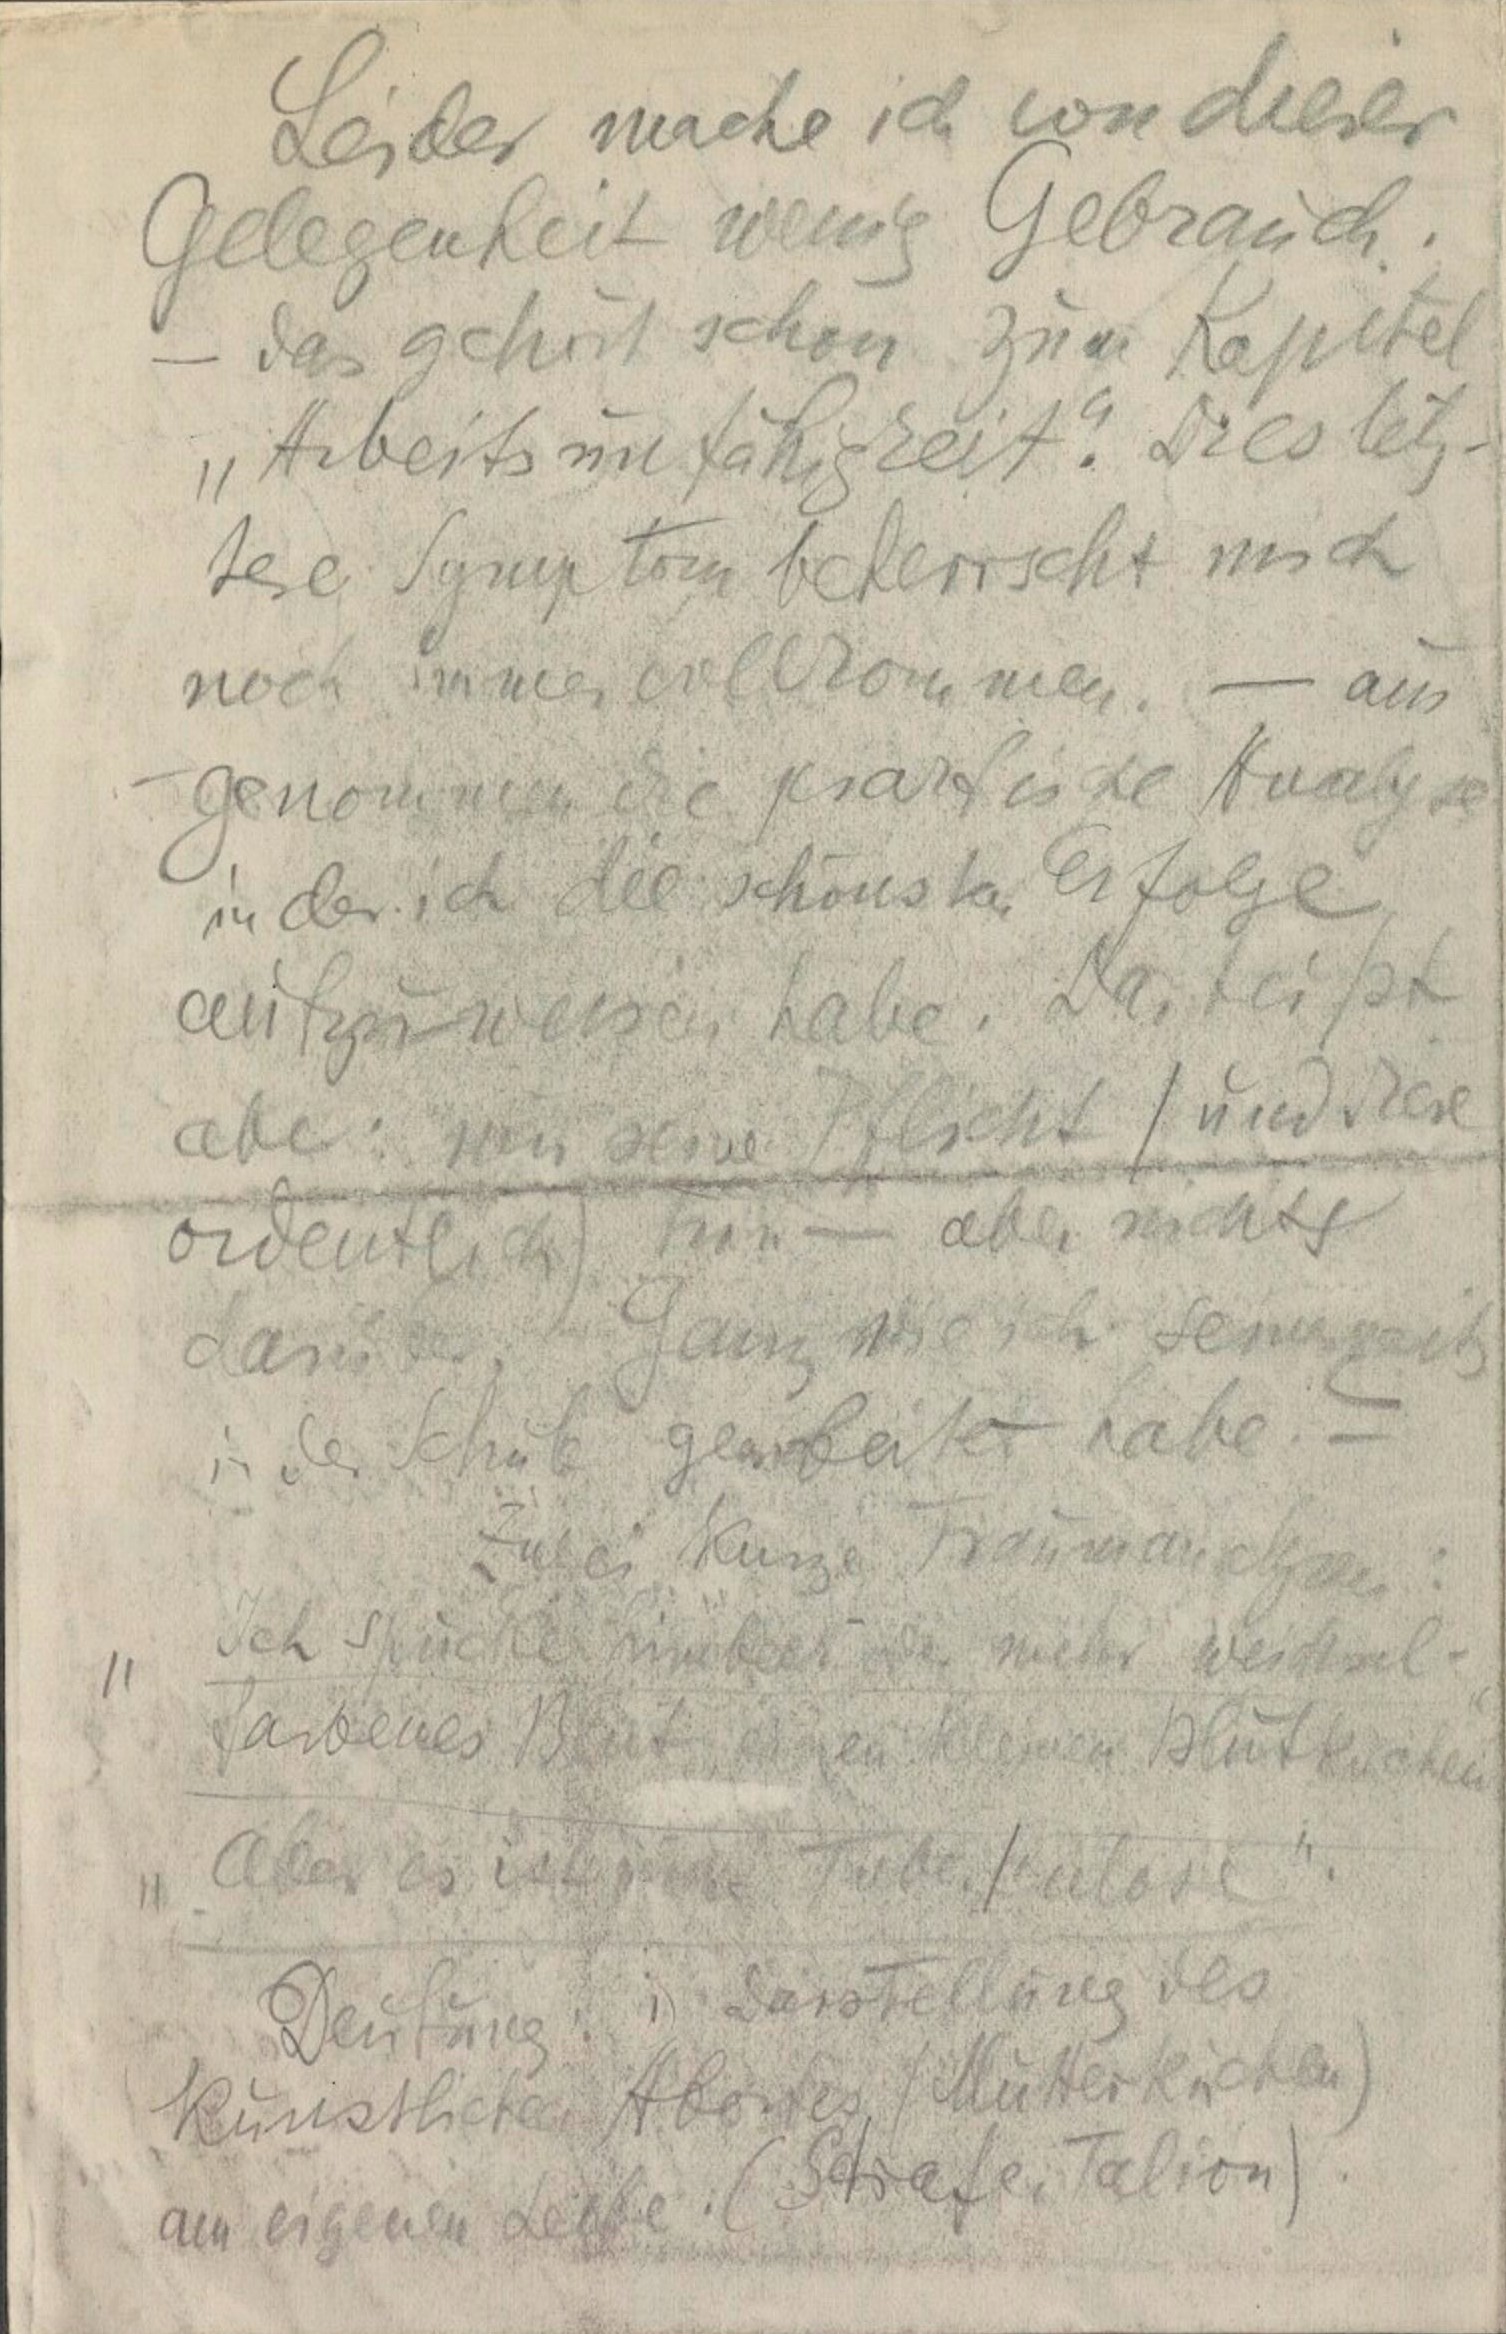 Leider mache ich von dieser
Gelegenheit wenig Gebrauch.
— das gehört schon zum Kapitel
„Arbeitsunfähigkeit“. Dies letz-
tere Symptom beherrscht mich
noch immer vollkommen. — aus
-genommen die praktische Analyse
in der ich die schönsten Erfolge
aufzuweisen habe. Das heisst
aber: nur seine Pflicht (und diese
ordentlich) tun — aber nichts
darüber. Ganz wie ich seinerzeit
in der Schule gearbeitet habe. —
Zwei kurze Traumanalysen:
„Ich spucke himbeer oder mehr weichsel-
farbenes Blut einen kleinen Blutkuchen“
„Aber es ist keine Tuberkulose“.
Deutung: 1) Darstellung des
künstlichen Abortus (Mutterkuchen)
am eigenen Leibe. (Strafe, Talion).